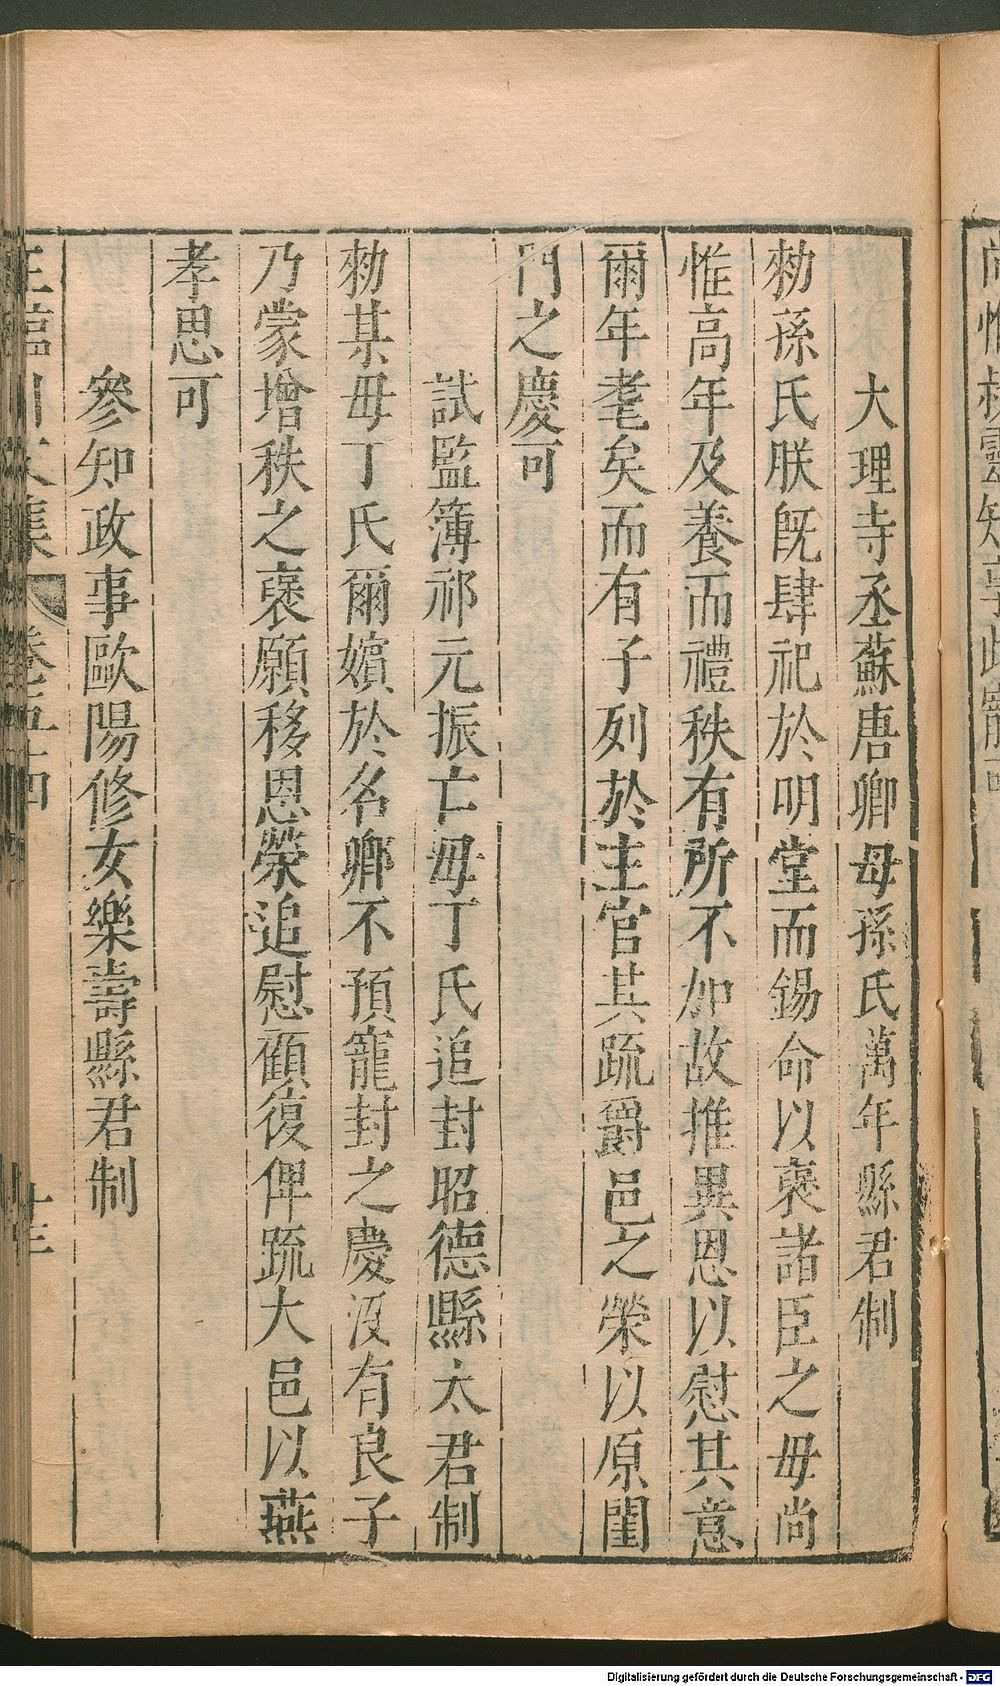 大理寺丞蘇唐卿母孫氏萬年縣君制
勑孫氏朕旣肆祀於明堂而錫命以褒諸臣之母尚
惟高年及養而禮秩有所不加故推異恩以慰其意
爾年耄矣而有子列於主官其疏爵邑之榮以原閨
門之慶可
試監簿祁元振亡母丁氏追封昭德縣太君制
勑某母丁氏爾嬪於名卿不預寵封之慶沒有良子
乃蒙增秩之褒願移恩榮追慰顧復俾疏大邑以燕
孝思可
參知政事歐陽修女樂壽縣君制
王臨川文集 卷五十四 十三
Digitalisierung gefördert durch die Deutsche Forschungsgemeinschaft - DFG